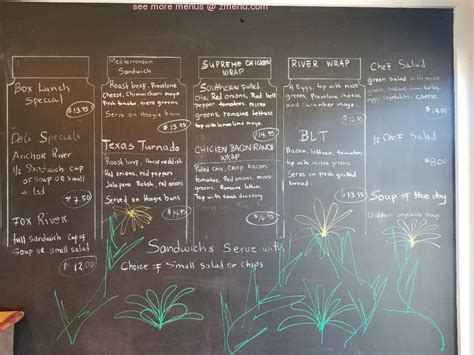 see more menus @ zmenu.com
Box Lunch
Special
$13.95
Deli Specials
Anchor River
1/2 Sandwich cup
of soup or Small
$7.50
Fox River
full Sandwich cup of
Soup or small salad
$12.00
Mesterranean
Sandwich
Roast beef, Provolone
Cheese, Chimmichurri mayo
Fresh tomato, micro greens
Serve on Hoagie buns
$13.95
Texas Turnado
Roast beef, Horse reddish
Red onions, red peppers
Jalapeno Relish, red onions
Served on Hoagie buns
$14.95
Supreme Chicken
Wrap
Southern Pulled
Chix, Red onions, Red bell
pepper tomatoes, micro
greens, romaine lettuce
top with lemon lime mayo.
$14.95
Chicken Bacon Ranch
Wrap
Pulled Chix, Crisp bacon
tomatoes, Red onions, micro
greens, Romaine lettuce,
Top with Caesar dressing
$16.95
River Wrap
4 Eggs, top with micro
greens, Provolone cheese
and Cucumber mayo
BLT
Bacon, lettuce, tomato
top with micro greens
Serve on fresh grilled
bread
$13.95
Chef Salad
green salad with micro
eggs, vegetables, cheese
$14.00
1/2 Chef Salad
$8.00
Soup of the day
Chicken vegetable soup
Sandwich's Serve with
Choice of Small Salad or Chips